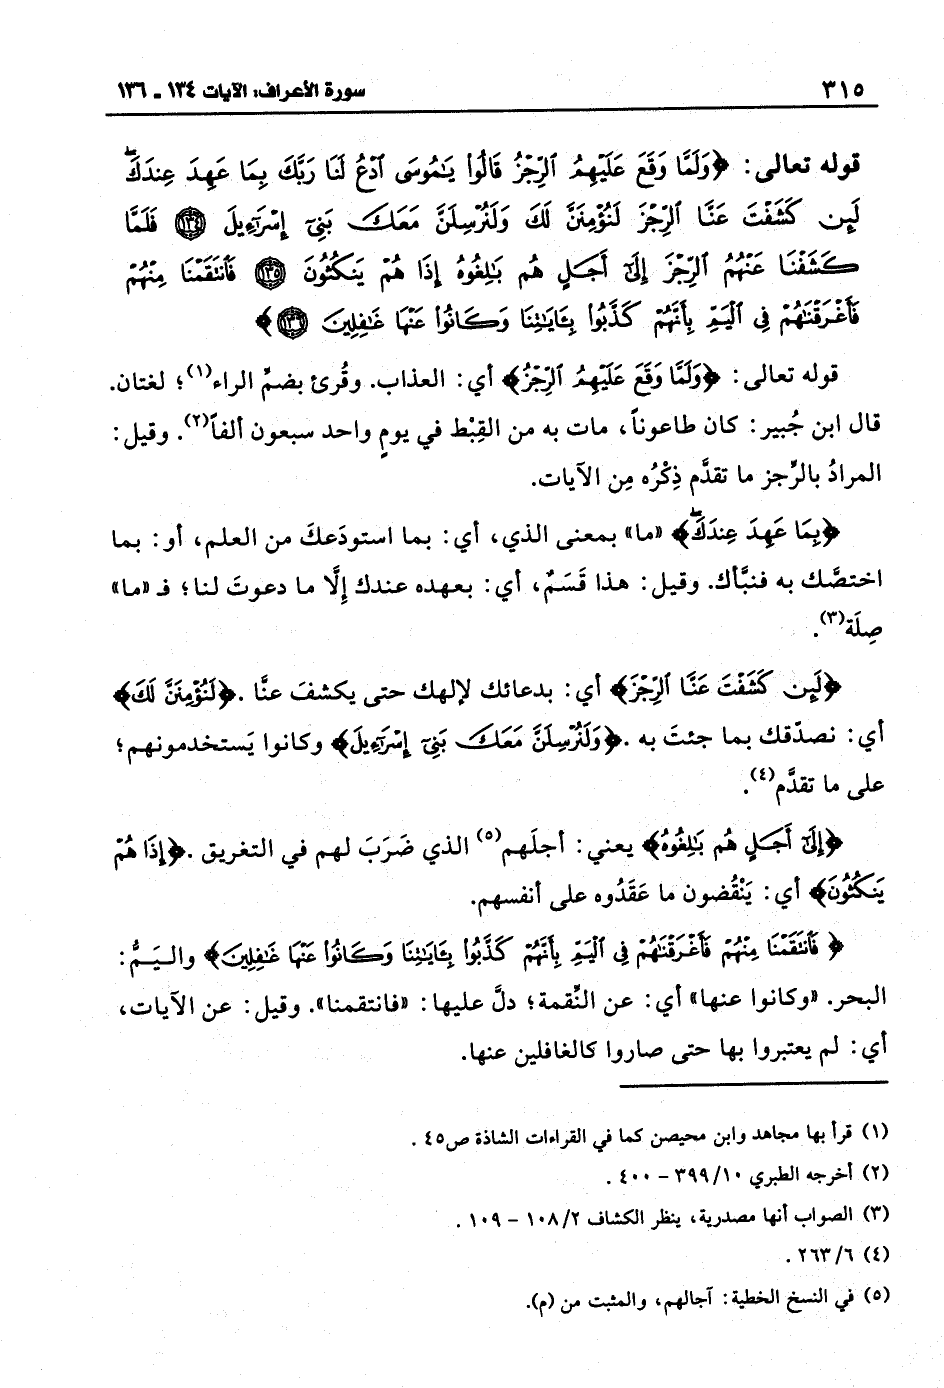 ٣١٥
سورة الأعراف: الآيات ١٣٤ - ١٣٦
قوله تعالى: ﴿وَلَمَّا وَقَعَ عَلَيْهِمُ ٱلرِّجْزُ قَالُوا۟ يَٰمُوسَى ٱدْعُ لَنَا رَبَّكَ بِمَا عَهِدَ عِندَكَۖ
لَئِن كَشَفْتَ عَنَّا ٱلرِّجْزَ لَنُؤْمِنَنَّ لَكَ وَلَنُرْسِلَنَّ مَعَكَ بَنِىٓ إِسْرَٰٓءِيلَ ١٣٤ فَلَمَّا
كَشَفْنَا عَنْهُمُ ٱلرِّجْزَ إِلَىٰٓ أَجَلٍ هُم بَٰلِغُوهُ إِذَا هُمْ يَنكُثُونَ ١٣٥ فَٱنتَقَمْنَا مِنْهُمْ
فَأَغْرَقْنَٰهُمْ فِى ٱلْيَمِّ بِأَنَّهُمْ كَذَّبُوا۟ بِـَٔايَٰتِنَا وَكَانُوا۟ عَنْهَا غَٰفِلِينَ ١٣٦﴾
قوله تعالى: ﴿وَلَمَّا وَقَعَ عَلَيْهِمُ ٱلرِّجْزُ﴾ أي: العذاب. وقُرئ بضمِّ الراء(١)؛ لغتان.
قال ابن جُبير: كان طاعوناً، مات به من القِبْط في يومٍ واحد سبعون ألفاً(٢). وقيل:
المرادُ بالرِّجز ما تقدَّم ذِكْرُه مِن الآيات.
﴿بِمَا عَهِدَ عِندَكَۖ﴾ «ما» بمعنى الذي، أي: بما استودَعكَ من العلم، أو: بما
اختصَّك به فنبَّأك. وقيل: هذا قَسَمٌ، أي: بعهده عندك إِلَّا ما دعوتَ لنا؛ فـ «ما»
صِلَة(٣).
﴿لَئِن كَشَفْتَ عَنَّا ٱلرِّجْزَ﴾ أي: بدعائك لإلهك حتى يكشفَ عنَّا. ﴿لَنُؤْمِنَنَّ لَكَ﴾
أي: نصدّقك بما جئتَ به. ﴿وَلَنُرْسِلَنَّ مَعَكَ بَنِىٓ إِسْرَٰٓءِيلَ﴾ وكانوا يَستخدمونهم؛
على ما تقدَّم(٤).
﴿إِلَىٰٓ أَجَلٍ هُم بَٰلِغُوهُ﴾ يعني: أجلَهم(٥) الذي ضَرَبَ لهم في التغريق. ﴿إِذَا هُمْ
يَنكُثُونَ﴾ أي: يَنْقُضون ما عَقَدُوه على أنفسهم.
﴿فَٱنتَقَمْنَا مِنْهُمْ فَأَغْرَقْنَٰهُمْ فِى ٱلْيَمِّ بِأَنَّهُمْ كَذَّبُوا۟ بِـَٔايَٰتِنَا وَكَانُوا۟ عَنْهَا غَٰفِلِينَ﴾ واليَمُّ:
البحر. «وكانوا عنها» أي: عن النِّقمة؛ دلَّ عليها: «فانتقمنا». وقيل: عن الآيات،
أي: لم يعتبروا بها حتى صاروا كالغافلين عنها.
(١) قرأ بها مجاهد وابن محيصن كما في القراءات الشاذة ص٤٥ .
(٢) أخرجه الطبري ١٠/ ٣٩٩ - ٤٠٠ .
(٣) الصواب أنها مصدرية، ينظر الكشاف ٢/ ١٠٨ - ١٠٩ .
(٤) ٦/ ٢٦٣ .
(٥) في النسخ الخطية: آجالهم، والمثبت من (م).